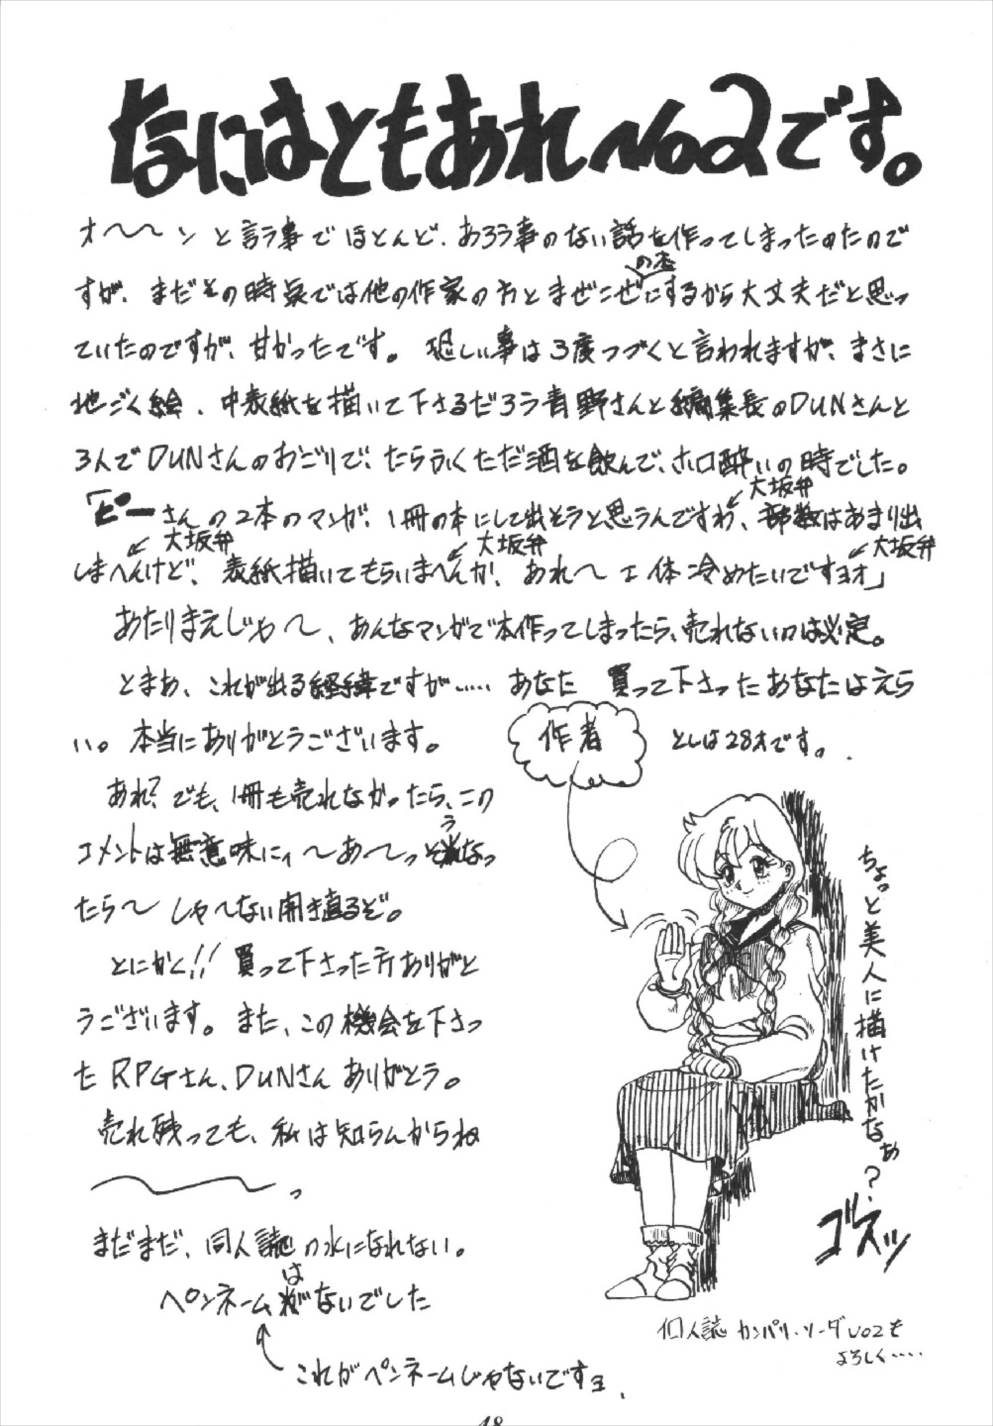 なにはともあれNo2です。
オ〜〜ンと言う事でほとんど、あろう事のない話を作ってしまったのたので
すが、まだその時点では他の作家の方とまぜこぜにするから大丈夫だと思っ
の本
ていたのですが、甘かったです。恐しい事は3度つづくと言われますが、まさに
地ごく絵、中表紙を描いて下さるだろう青野さんと編集長のDUNさんと
3人でDUNさんのおごりで、たらふくただ酒を飲んで、ホロ酔いの時でした。
「ピーさんの2本のマンガ、1冊の本にして出そうと思うんですわ、部数はあまり出
大坂弁
しまへんけど、表紙描いてもらいまへんか、あれ〜エ体冷めたいですヨオ」
大坂弁
大坂弁
大坂弁
あたりまえじゃ〜、あんなマンガで本作ってしまったら、売れないのは必定。
とまあ、これが出る経緯ですが……あなた 買って下さったあなたはえら
い。本当にありがとうございます。
作者
としは28才です。
あれ?でも、1冊も売れなかったら、この
コメントは無意味にィ〜あ〜っそうなっ
たら〜しゃ〜ない開き直るぞ。
とにかく!!買って下さった方ありがと
うございます。また、この機会を下さっ
たRPGさん、DUNさんありがとう。
売れ残っても、私は知らんからね
〜〜っ
まだまだ、同人誌の水になれない。
ペンネームはないでした
これがペンネームじゃないですョ、
ちょっと美人に描けたかなぁ?
ゴルスッ
個人誌 カンパリ・ソーダVO2も
よろしく....
18